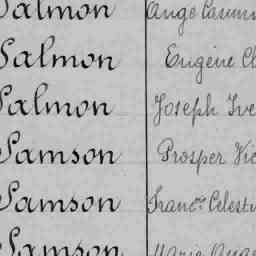 Salmon Ange
Salmon Eugène
Salmon Joseph
Samson Prosper
Samson Franc.s
Samson Marie